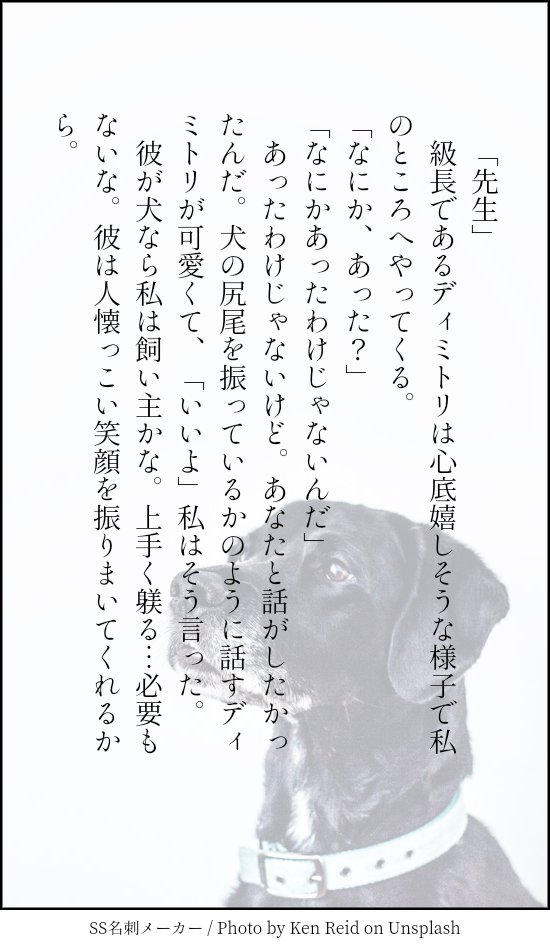 「先生」
級長であるディミトリは心底嬉しそうな様子で私
のところへやってくる。
「なにか、あった？」
「なにかあったわけじゃないんだ」
あったわけじゃないけど。あなたと話がしたかっ
たんだ。犬の尻尾を振っているかのように話すディ
ミトリが可愛くて、「いいよ」私はそう言った。
彼が犬なら私は飼い主かな。上手く躾る…必要も
ないな。彼は人懐っこい笑顔を振りまいてくれるか
ら。
SS名刺メーカー / Photo by Ken Reid on Unsplash